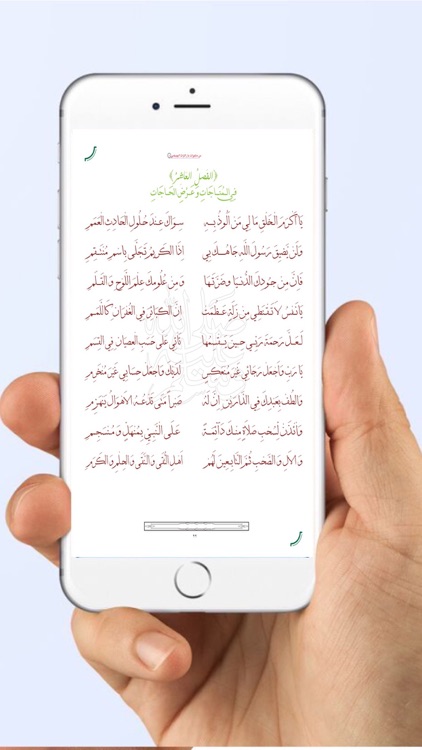 (الفَصْلُ العَاشِرُ)
فِي الْمُنَاجَاتِ وَعَرْضِ الْحَاجَاتِ
يَا أَكْرَمَ الْخَلْقِ مَا لِي مَنْ أَلُوذُ بِهِ سِوَاكَ عِنْدَ حُلُولِ الْحَادِثِ الْعَمَمِ
وَلَنْ يَضِيقَ رَسُولَ اللّٰهِ جَاهُكَ بِي إِذَا الْكَرِيْمُ تَجَلَّى بِاسْمِ مُنْتَقِمِ
فَإِنَّ مِنْ جُودِكَ الدُّنْيَا وَضَرَّتَهَا وَمِنْ عُلُومِكَ عِلْمَ اللَّوْحِ وَالْقَلَمِ
يَا نَفْسُ لَا تَقْنَطِي مِنْ زَلَّةٍ عَظُمَتْ إِنَّ الْكَبَائِرَ فِي الْغُفْرَانِ كَاللَّمَمِ
لَعَلَّ رَحْمَةَ رَبِّي حِينَ يَقْسِمُهَا تَأْتِي عَلَى حَسَبِ الْعِصْيَانِ فِي الْقِسَمِ
يَا رَبِّ وَاجْعَلْ رَجَائِي غَيْرَ مُنْعَكِسٍ لَدَيْكَ وَاجْعَلْ حِسَابِي غَيْرَ مُنْخَرِمِ
وَالْطُفْ بِعَبْدِكَ فِي الدَّارَيْنِ إِنَّ لَهُ صَبْرًا مَتَى تَدْعُهُ الْأَهْوَالُ يَنْهَزِمِ
وَأْذَنْ لِسُحْبِ صَلَاةٍ مِنْكَ دَائِمَةً عَلَى النَّبِيِّ بِمُنْهَلٍّ وَمُنْسَجِمِ
وَالْآلِ وَالصَّحْبِ ثُمَّ التَّابِعِينَ لَهُمْ أَهْلِ التُّقَى وَالنُّقَى وَالْحِلْمِ وَالْكَرَمِ